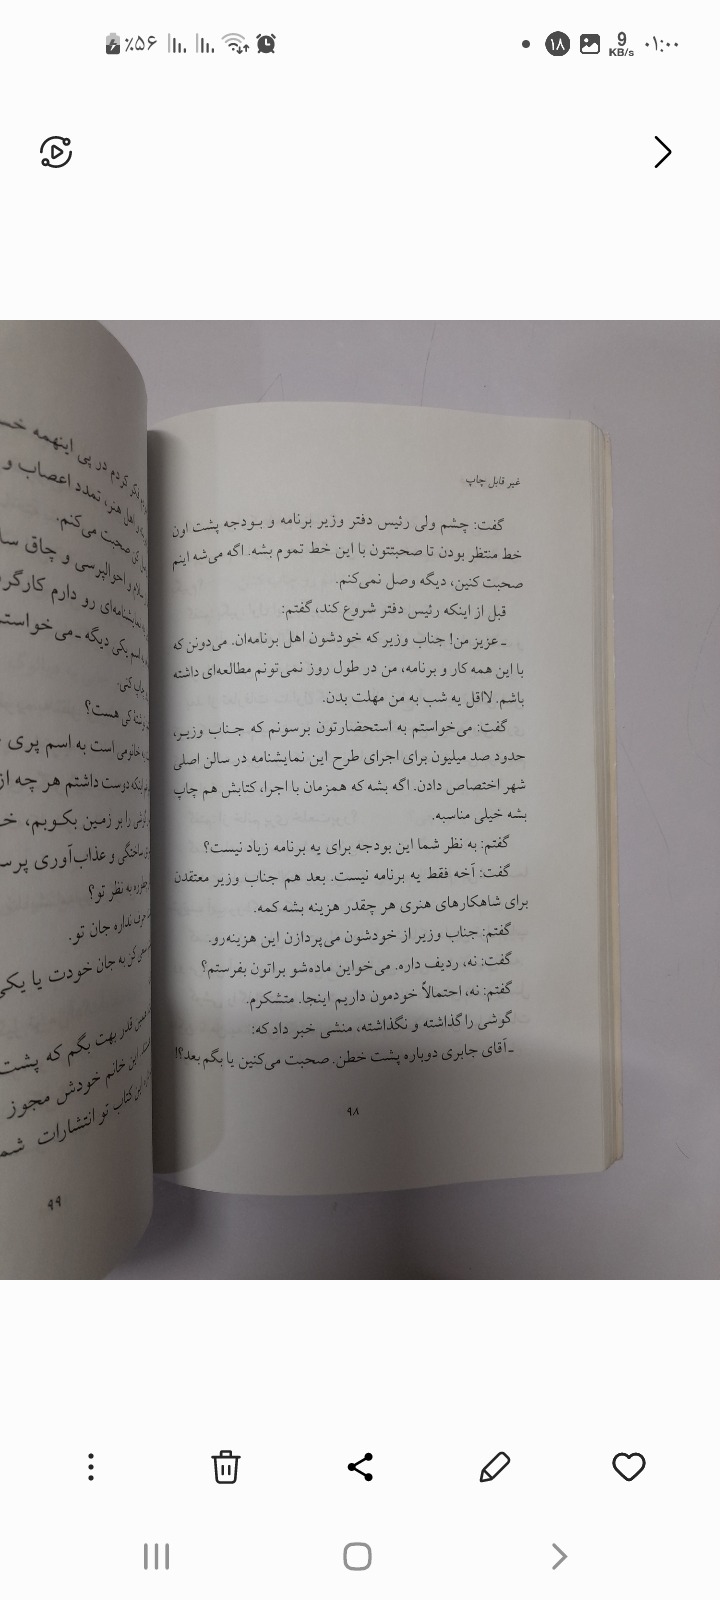 ٪۵۶
۱۸
9
KB/s
۰۱:۰۰
غیر قابل چاپ
گفت: چشم ولی رئیس دفتر وزیر برنامه و بودجه پشت اون
خط منتظر بودن تا صحبتتون با این خط تموم بشه. اگه می‌شه اینم
صحبت کنین، دیگه وصل نمی‌کنم.
قبل از اینکه رئیس دفتر شروع کند، گفتم:
ـ عزیز من! جناب وزیر که خودشون اهل برنامه‌ان. می‌دونن که
با این همه کار و برنامه، من در طول روز نمی‌تونم مطالعه‌ای داشته
باشم. لااقل یه شب به من مهلت بدن.
گفت: می‌خواستم به استحضارتون برسونم که جناب وزیر،
حدود صد میلیون برای اجرای طرح این نمایشنامه در سالن اصلی
شهر اختصاص دادن. اگه بشه که همزمان با اجرا، کتابش هم چاپ
بشه خیلی مناسبه.
گفتم: به نظر شما این بودجه برای یه برنامه زیاد نیست؟
گفت: آخه فقط یه برنامه نیست. بعد هم جناب وزیر معتقدن
برای شاهکارهای هنری هر چقدر هزینه بشه کمه.
گفتم: جناب وزیر از خودشون می‌پردازن این هزینه‌رو.
گفت: نه، ردیف داره. می‌خواین ماده‌شو براتون بفرستم؟
گفتم: نه، احتمالاً خودمون داریم اینجا. متشکرم.
گوشی را گذاشته و نگذاشته، منشی خبر داد که:
ـ آقای جابری دوباره پشت خطن. صحبت می‌کنین یا بگم بعد؟!
۹۸
کردم در پی اینهمه
اهل هنر، تمدد اعصاب و
صحبت می‌کنم.
و احوالپرسی و چاق
نمایشنامه‌ای رو دارم
اسم یکی دیگه ـ
چاپ کنی.
کی هست؟
خانومی است به اسم پری
اینکه دوست داشتم هر چه از
را بر زمین بکوبم،
ساختگی و عذاب‌آوری
به نظر تو؟
حرف نداره جان تو.
کن به جان خودت یا یکی
قدر بهت بگم که پشت
این خانم خودش مجوز
این کتاب تو انتشارات
۹۹